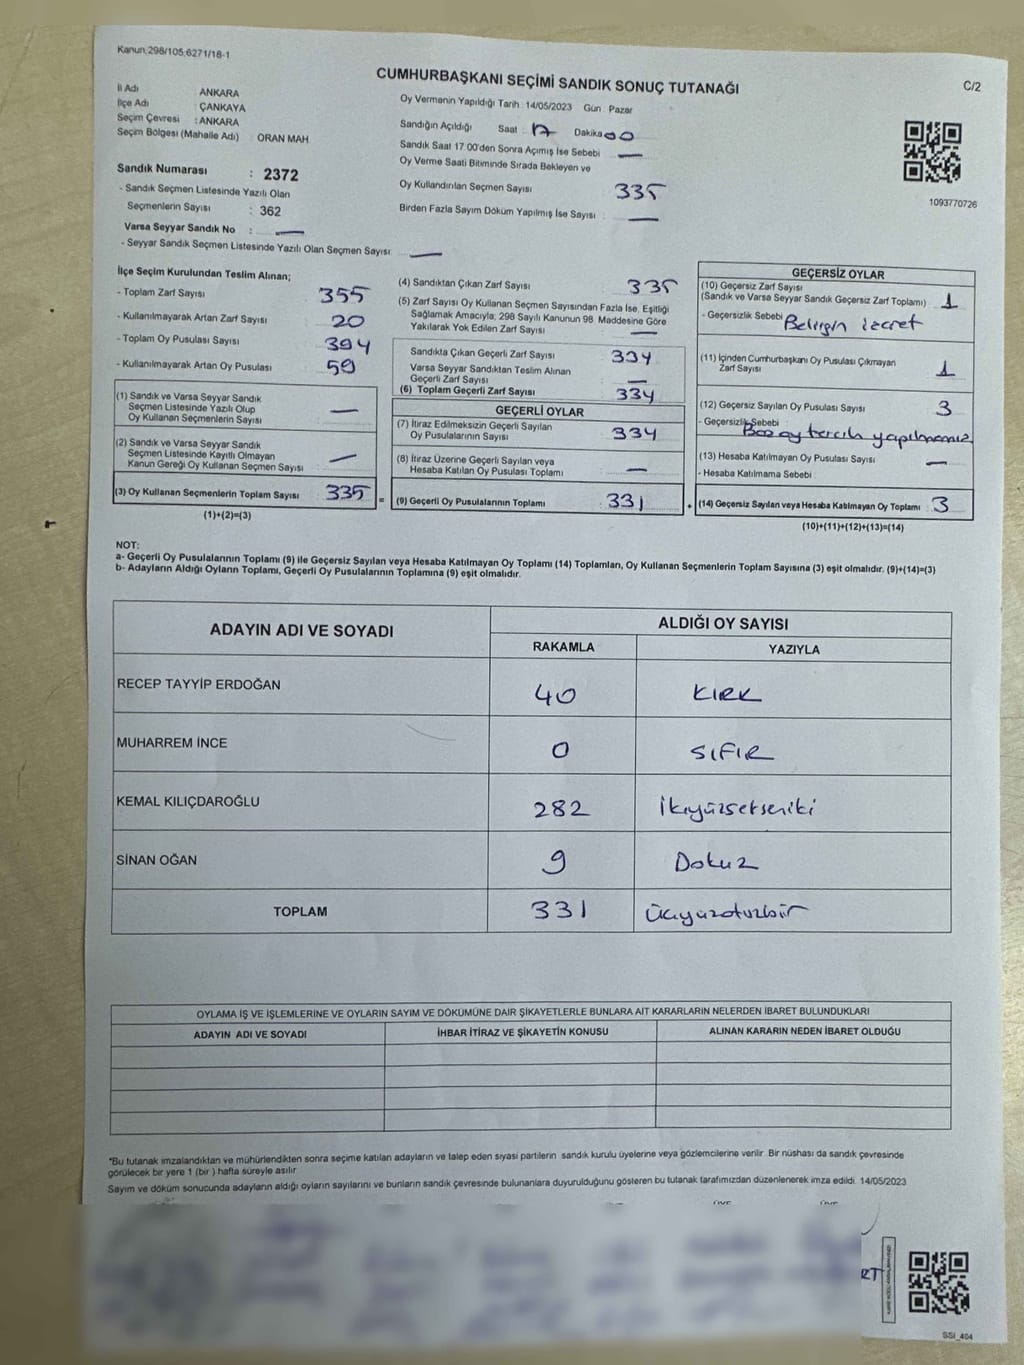 Kanun;298/105;6271/18-1
CUMHURBAŞKANI SEÇİMİ SANDIK SONUÇ TUTANAĞI
C/2
İl Adı ANKARA
İlçe Adı ÇANKAYA
Seçim Çevresi : ANKARA
Seçim Bölgesi (Mahalle Adı) : ORAN MAH
Sandık Numarası : 2372
- Sandık Seçmen Listesinde Yazılı Olan
Seçmenlerin Sayısı : 362
Varsa Seyyar Sandık No : —
- Seyyar Sandık Seçmen Listesinde Yazılı Olan Seçmen Sayısı: —
Oy Vermenin Yapıldığı Tarih :14/05/2023 Gün : Pazar
Sandığın Açıldığı Saat : 17 Dakika 00
Sandık Saat 17:00'den Sonra Açımış İse Sebebi : —
Oy Verme Saati Bitiminde Sırada Bekleyen ve
Oy Kullandırılan Seçmen Sayısı 335
Birden Fazla Sayım Döküm Yapılmış İse Sayısı : —
1093770726
İlçe Seçim Kurulundan Teslim Alınan;
- Toplam Zarf Sayısı 355
- Kullanılmayarak Artan Zarf Sayısı 20
- Toplam Oy Pusulası Sayısı 394
- Kullanılmayarak Artan Oy Pusulası 59
(1) Sandık ve Varsa Seyyar Sandık
Seçmen Listesinde Yazılı Olup
Oy Kullanan Seçmenlerin Sayısı —
(2) Sandık ve Varsa Seyyar Sandık
Seçmen Listesinde Kayıtlı Olmayan
Kanun Gereği Oy Kullanan Seçmen Sayısı —
(3) Oy Kullanan Seçmenlerin Toplam Sayısı 335 =
(1)+(2)=(3)
(4) Sandıktan Çıkan Zarf Sayısı 335
(5) Zarf Sayısı Oy Kullanan Seçmen Sayısından Fazla İse, Eşitliği
Sağlamak Amacıyla; 298 Sayılı Kanunun 98. Maddesine Göre
Yakılarak Yok Edilen Zarf Sayısı —
Sandıkta Çıkan Geçerli Zarf Sayısı 334
Varsa Seyyar Sandıktan Teslim Alınan
Geçerli Zarf Sayısı —
(6) Toplam Geçerli Zarf Sayısı 334
GEÇERLİ OYLAR
(7) İtiraz Edilmeksizin Geçerli Sayılan
Oy Pusulalarının Sayısı 334
(8) İtiraz Üzerine Geçerli Sayılan veya
Hesaba Katılan Oy Pusulası Toplamı —
(9) Geçerli Oy Pusulalarının Toplamı 331 +
GEÇERSİZ OYLAR
(10) Geçersiz Zarf Sayısı
(Sandık ve Varsa Seyyar Sandık Geçersiz Zarf Toplamı) 1
- Geçersizlik Sebebi : Belirgin işaret
(11) İçinden Cumhurbaşkanı Oy Pusulası Çıkmayan
Zarf Sayısı 1
(12) Geçersiz Sayılan Oy Pusulası Sayısı 3
- Geçersizlik Sebebi :
Boş oy tercih yapılmamış
(13) Hesaba Katılmayan Oy Pusulası Sayısı —
- Hesaba Katılmama Sebebi
(14) Geçersiz Sayılan veya Hesaba Katılmayan Oy Toplamı 3
(10)+(11)+(12)+(13)=(14)
NOT:
a- Geçerli Oy Pusulalarının Toplamı (9) ile Geçersiz Sayılan veya Hesaba Katılmayan Oy Toplamı (14) Toplamları, Oy Kullanan Seçmenlerin Toplam Sayısına (3) eşit olmalıdır. (9)+(14)=(3)
b- Adayların Aldığı Oyların Toplamı, Geçerli Oy Pusulalarının Toplamına (9) eşit olmalıdır.
ADAYIN ADI VE SOYADI
ALDIĞI OY SAYISI
RAKAMLA YAZIYLA
RECEP TAYYİP ERDOĞAN 40 KIRK
MUHARREM İNCE 0 SIFIR
KEMAL KILIÇDAROĞLU 282 İkiyüzsekseniki
SİNAN OĞAN 9 Dokuz
TOPLAM 331 Üçyüzotuzbir
OYLAMA İŞ VE İŞLEMLERİNE VE OYLARIN SAYIM VE DÖKÜMÜNE DAİR ŞİKAYETLERLE BUNLARA AİT KARARLARIN NELERDEN İBARET BULUNDUKLARI
ADAYIN ADI VE SOYADI İHBAR İTİRAZ VE ŞİKAYETİN KONUSU ALINAN KARARIN NEDEN İBARET OLDUĞU
*Bu tutanak imzalandıktan ve mühürlendikten sonra seçime katılan adayların ve talep eden siyasi partilerin sandık kurulu üyelerine veya gözlemcilerine verilir. Bir nüshası da sandık çevresinde
görülecek bir yere 1 (bir ) hafta süreyle asılır
Sayım ve döküm sonucunda adayların aldığı oyların sayılarını ve bunların sandık çevresinde bulunanlara duyurulduğunu gösteren bu tutanak tarafımızdan düzenlenerek imza edildi. 14/05/2023
SSİ_404